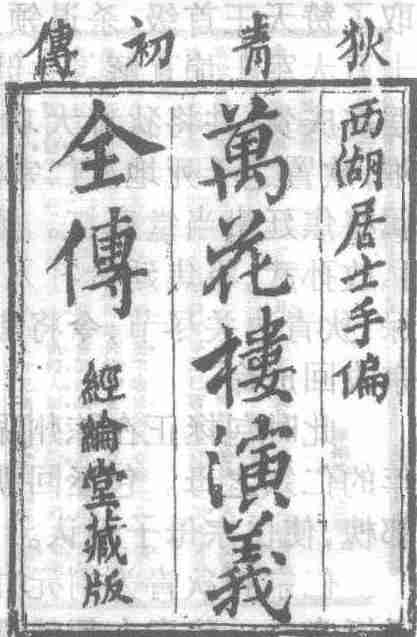 狄青初傳
西湖居士手偏
萬花樓演義
全傳
經綸堂藏版